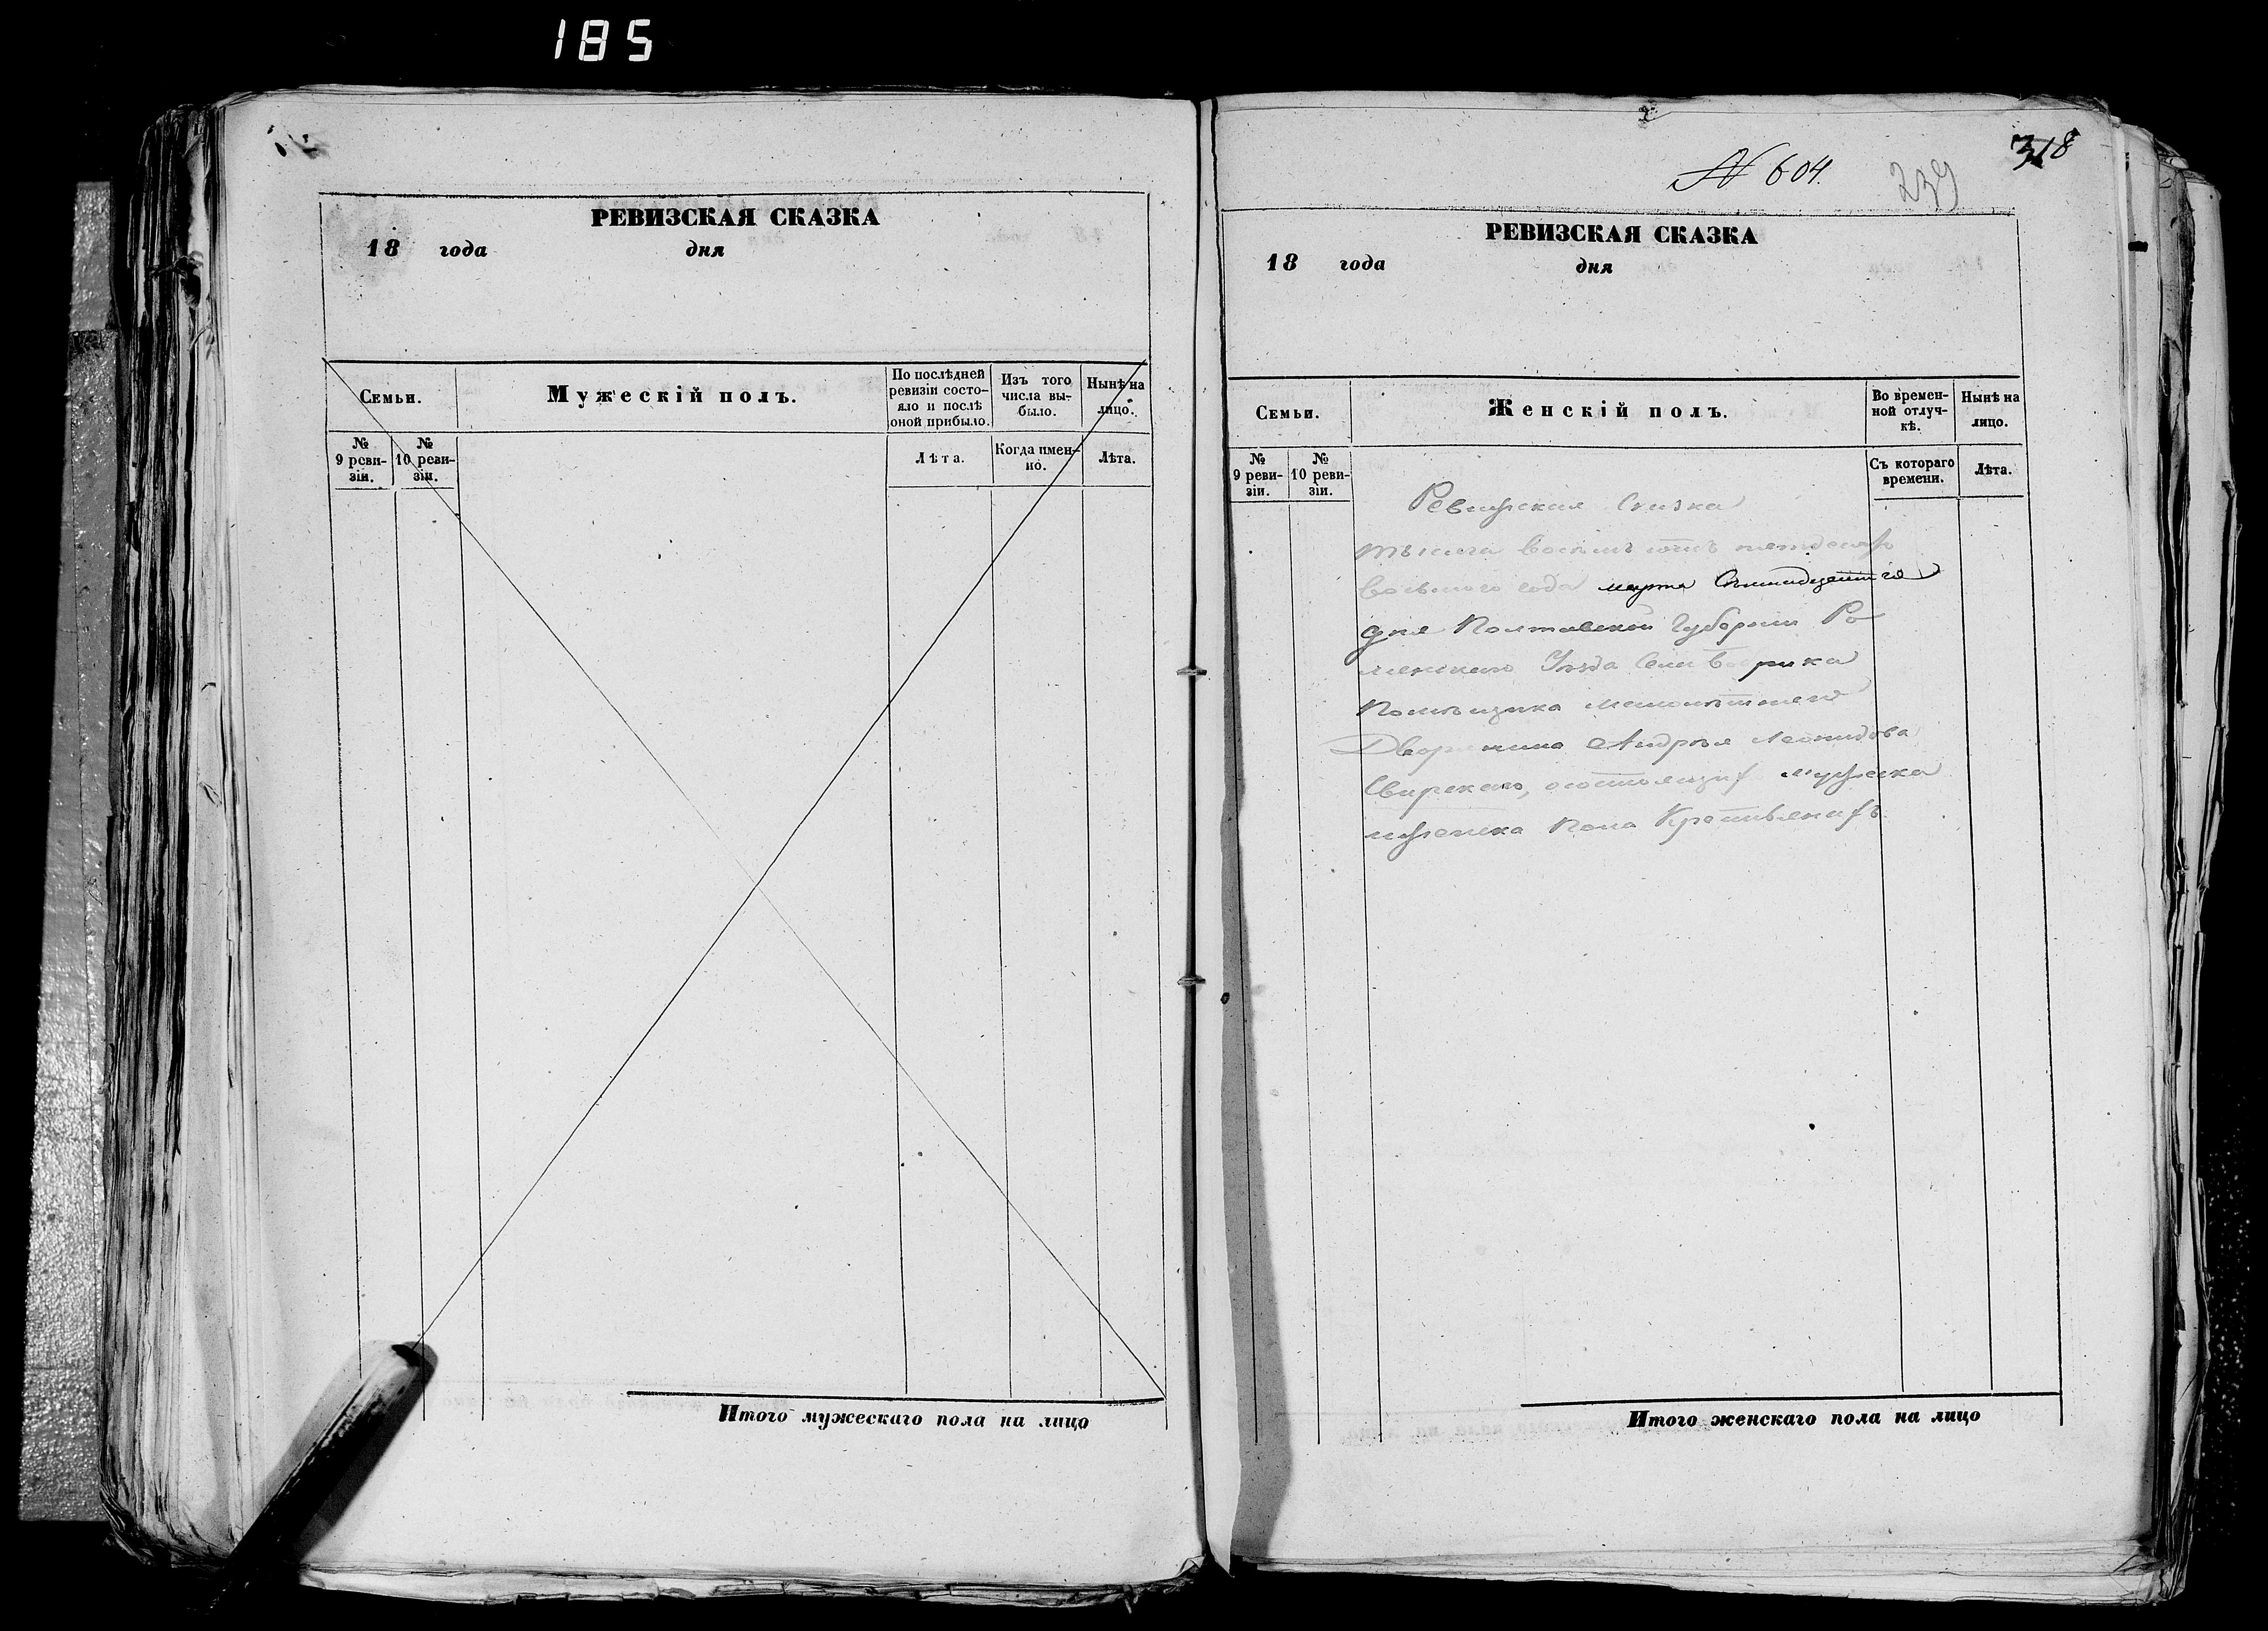 185
РЕВИЗСКАЯ СКАЗКА
18 года дня
Семьи.
Мужескій полъ.
По послѣдней ревизіи состо-
яло и послѣ оной прибыло.
Изъ того числа вы-
было.
Нынѣ на лицо.
№ 9 реви-
зіи.
№ 10 реви-
зіи.
Лѣта.
Когда имен-
но.
Лѣта.
Итого мужескаго пола на лицо
318
N 604.
239
РЕВИЗСКАЯ СКАЗКА
18 года дня
Семьи.
Женскій полъ.
Во времен-
ной отлуч-
кѣ.
Нынѣ на лицо.
№ 9 реви-
зіи.
№ 10 реви-
зіи.
Съ котораго времени.
Лѣта.
Ревизская Сказка
тысяча восемь сотъ пятдесятъ
восьмого года марта
дня Полтавской Губерніи Ро
менскаго Уѣзда Села
Помѣщика малолѣтнего
Дворянина Андрея Леонидова
Свирскаго, состоящих мужеска
женска пола Крестьянахъ
Итого женскаго пола на лицо